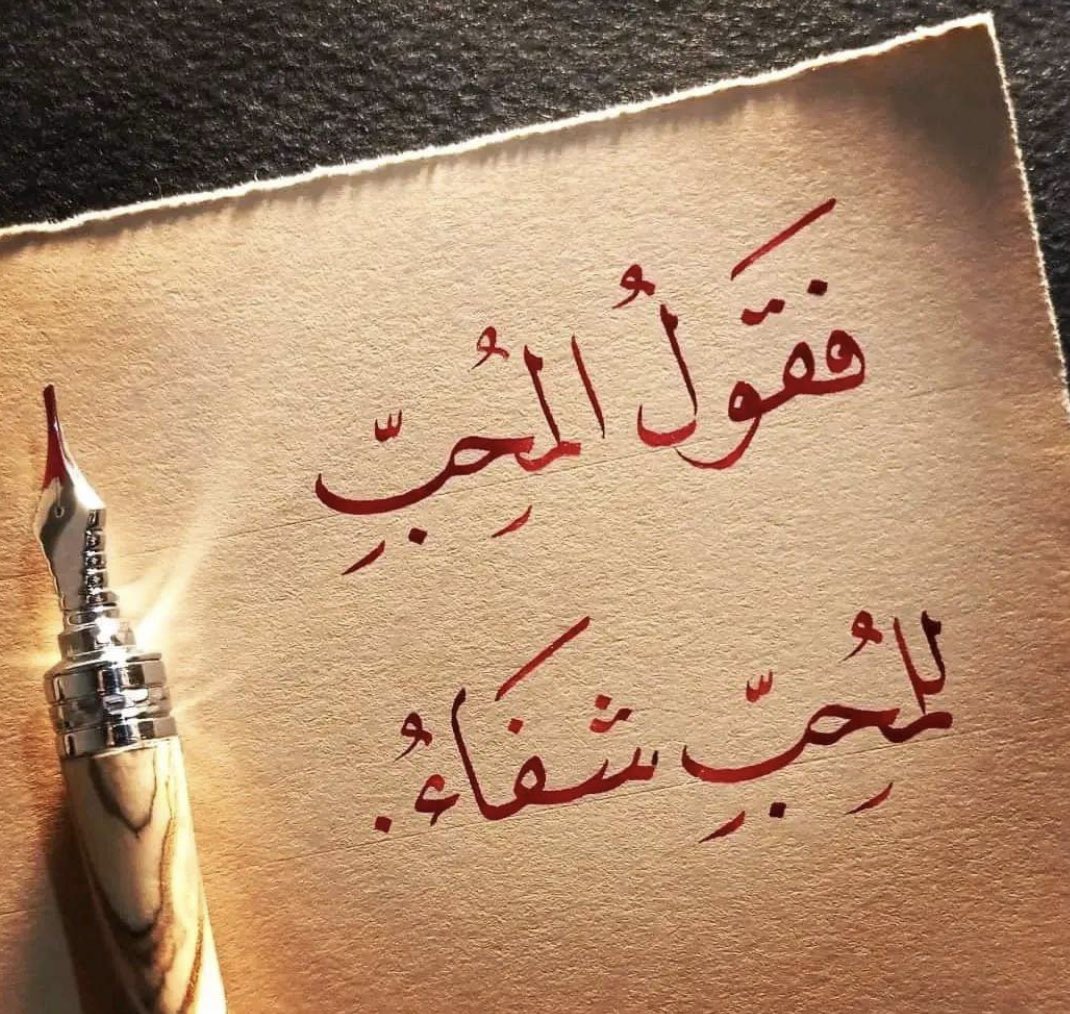 فَقَولُ المُحِبِّ
لِلمُحِبِّ شَفَاءُ.